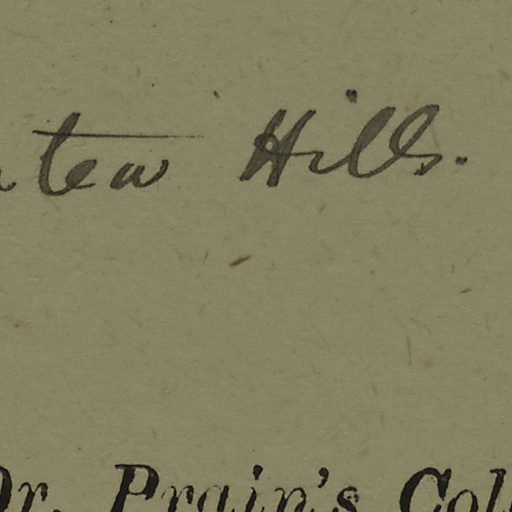 tew Hills.
Dr. Prain's Coll